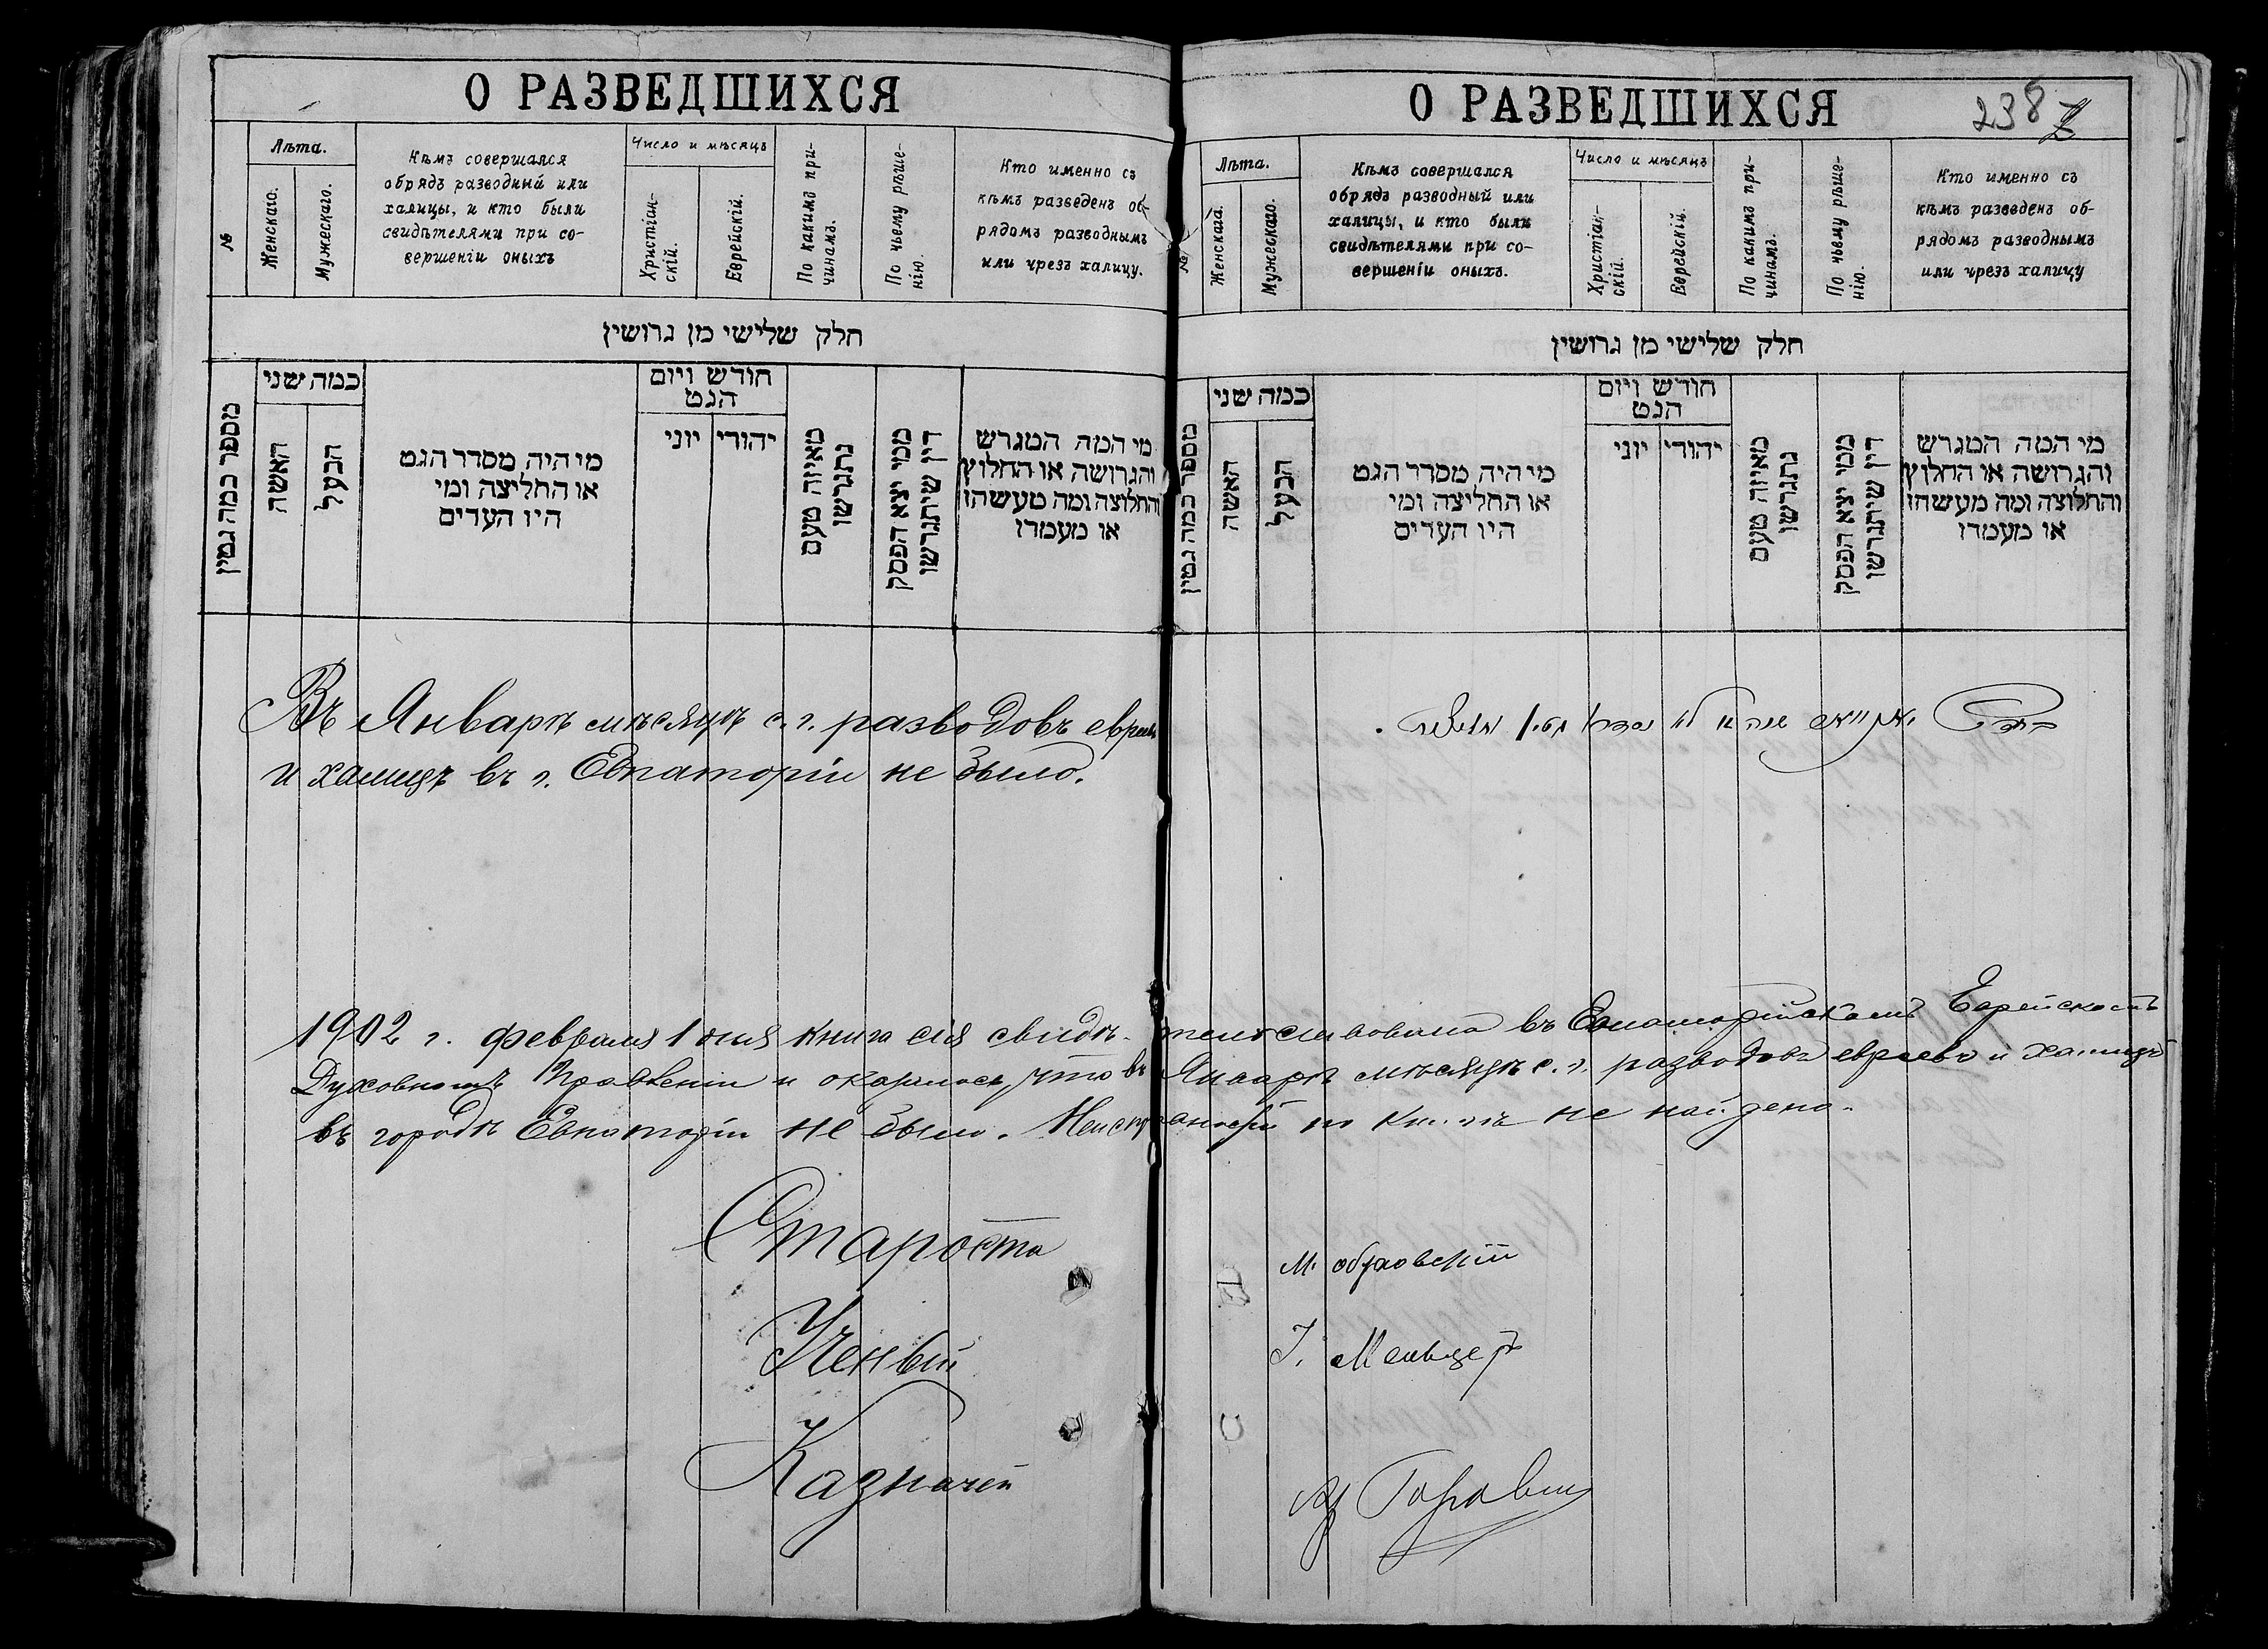 О РАЗВЕДШИХСЯ
№
Лѣта.
Женскаго.
Мужескаго.
Кѣмъ совершался
обрядъ разводный или
халицы, и кто были
свидѣтелями при со-
вершеніи оныхъ
Число и мѣсяцъ
Христіан-
скій.
Еврейскій.
По какимъ при-
чинамъ.
По чьему рѣше-
нію.
Кто именно съ
кѣмъ разведенъ об-
рядомъ разводнымъ
или чрезъ халицу.
חלק שלישי מן גרושין
מספר כמה גטין
כמה שני
האשה
הבעל
מי היה מסדר הגט
או החליצה ומי
היו העדים
חודש ויום
הגט
יוני
יהודי
מאיזה טעם
נתגרשו
ממי יצא הפסק
דין שיתגרשו
מי המה המגרש
והגרושה או החלוץ
והחלוצה ומה מעשהו
או מעמדו
Въ Январѣ мѣсяцѣ с. г. разводовъ евреевъ
и халицъ въ г. Евпаторіи не было.
О РАЗВЕДШИХСЯ
238
№
Лѣта.
Женскаго.
Мужескаго.
Кѣмъ совершался
обрядъ разводный или
халицы, и кто были
свидѣтелями при со-
вершеніи оныхъ.
Число и мѣсяцъ
Христіан-
скій.
Еврейскій.
По какимъ при-
чинамъ.
По чьему рѣше-
нію.
Кто именно съ
кѣмъ разведенъ об-
рядомъ разводнымъ
или чрезъ халицу
חלק שלישי מן גרושין
מספר כמה גטין
כמה שני
האשה
הבעל
מי היה מסדר הגט
או החליצה ומי
היו העדים
חודש ויום
הגט
יוני
יהודי
מאיזה טעם
נתגרשו
ממי יצא הפסק
דין שיתגרשו
מי המה המגרש
והגרושה או החלוץ
והחלוצה ומה מעשהו
או מעמדו
1902 г. февраля 1 дня книга сія свидѣ-тельствована въ Евпаторійскомъ Еврейскомъ
Духовномъ Правленіи и оказалось, что въ Январѣ мѣсяцѣ с. г. разводовъ евреевъ и халицъ
въ городѣ Евпаторіи не было. Неисправностей по книгѣ не найдено.
Староста
Ученый
Казначей
И. Мельцеръ